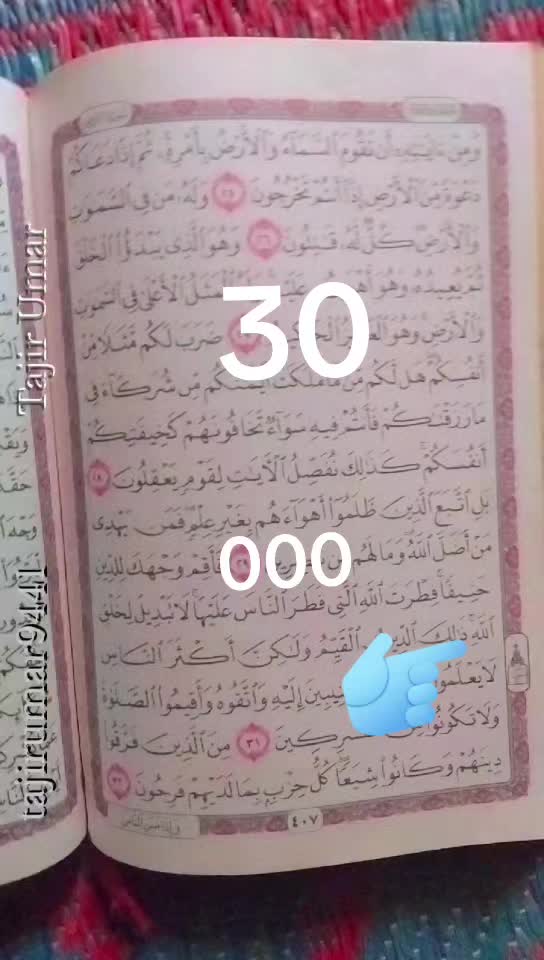 وَمِنْ ءَايَٰتِهِۦٓ أَن تَقُومَ ٱلسَّمَآءُ وَٱلْأَرْضُ بِأَمْرِهِۦ ثُمَّ إِذَا دَعَاكُمْ
دَعْوَةً مِّنَ ٱلْأَرْضِ إِذَآ أَنتُمْ تَخْرُجُونَ ٢٥ وَلَهُۥ مَن فِى ٱلسَّمَٰوَٰتِ
وَٱلْأَرْضِ كُلٌّ لَّهُۥ قَٰنِتُونَ ٢٦ وَهُوَ ٱلَّذِى يَبْدَؤُا۟ ٱلْخَلْقَ
ثُمَّ يُعِيدُهُۥ وَهُوَ عَلَيْهِ ٱلْمَثَلُ ٱلْأَعْلَىٰ فِى ٱلسَّمَٰوَٰتِ
30
وَٱلْأَرْضِ وَهُوَ ضَرَبَ لَكُم مَّثَلًا مِّنْ
أَنفُسِكُمْ هَل لَّكُم مِّن مَّا مَلَكَتْ أَيْمَٰنُكُم مِّن شُرَكَآءَ فِى
مَا رَزَقْنَٰكُمْ فَأَنتُمْ فِيهِ سَوَآءٌ تَخَافُونَهُمْ كَخِيفَتِكُمْ
أَنفُسَكُمْ كَذَٰلِكَ نُفَصِّلُ ٱلْءَايَٰتِ لِقَوْمٍ يَعْقِلُونَ ٢٨
بَلِ ٱتَّبَعَ ٱلَّذِينَ ظَلَمُوٓا۟ أَهْوَآءَهُم بِغَيْرِ عِلْمٍ فَمَن يَهْدِى
مَنْ أَضَلَّ ٱللَّهُ وَمَا لَهُم مِّن ٢٩ فَأَقِمْ وَجْهَكَ لِلدِّينِ
000
حَنِيفًا فِطْرَتَ ٱللَّهِ ٱلَّتِى فَطَرَ ٱلنَّاسَ عَلَيْهَا لَا تَبْدِيلَ لِخَلْقِ
ٱللَّهِ ذَٰلِكَ ٱلدِّينُ ٱلْقَيِّمُ وَلَٰكِنَّ أَكْثَرَ ٱلنَّاسِ
لَا يَعْلَمُونَ إِلَيْهِ وَٱتَّقُوهُ وَأَقِيمُوا۟ ٱلصَّلَوٰةَ
وَلَا تَكُونُوا۟ ٣١ مِنَ ٱلَّذِينَ فَرَّقُوا۟
دِينَهُمْ وَكَانُوا۟ شِيَعًا كُلُّ حِزْبٍۭ بِمَا لَدَيْهِمْ فَرِحُونَ ٣٢
٤٠٧
Tajir Umar
tajirumar9444